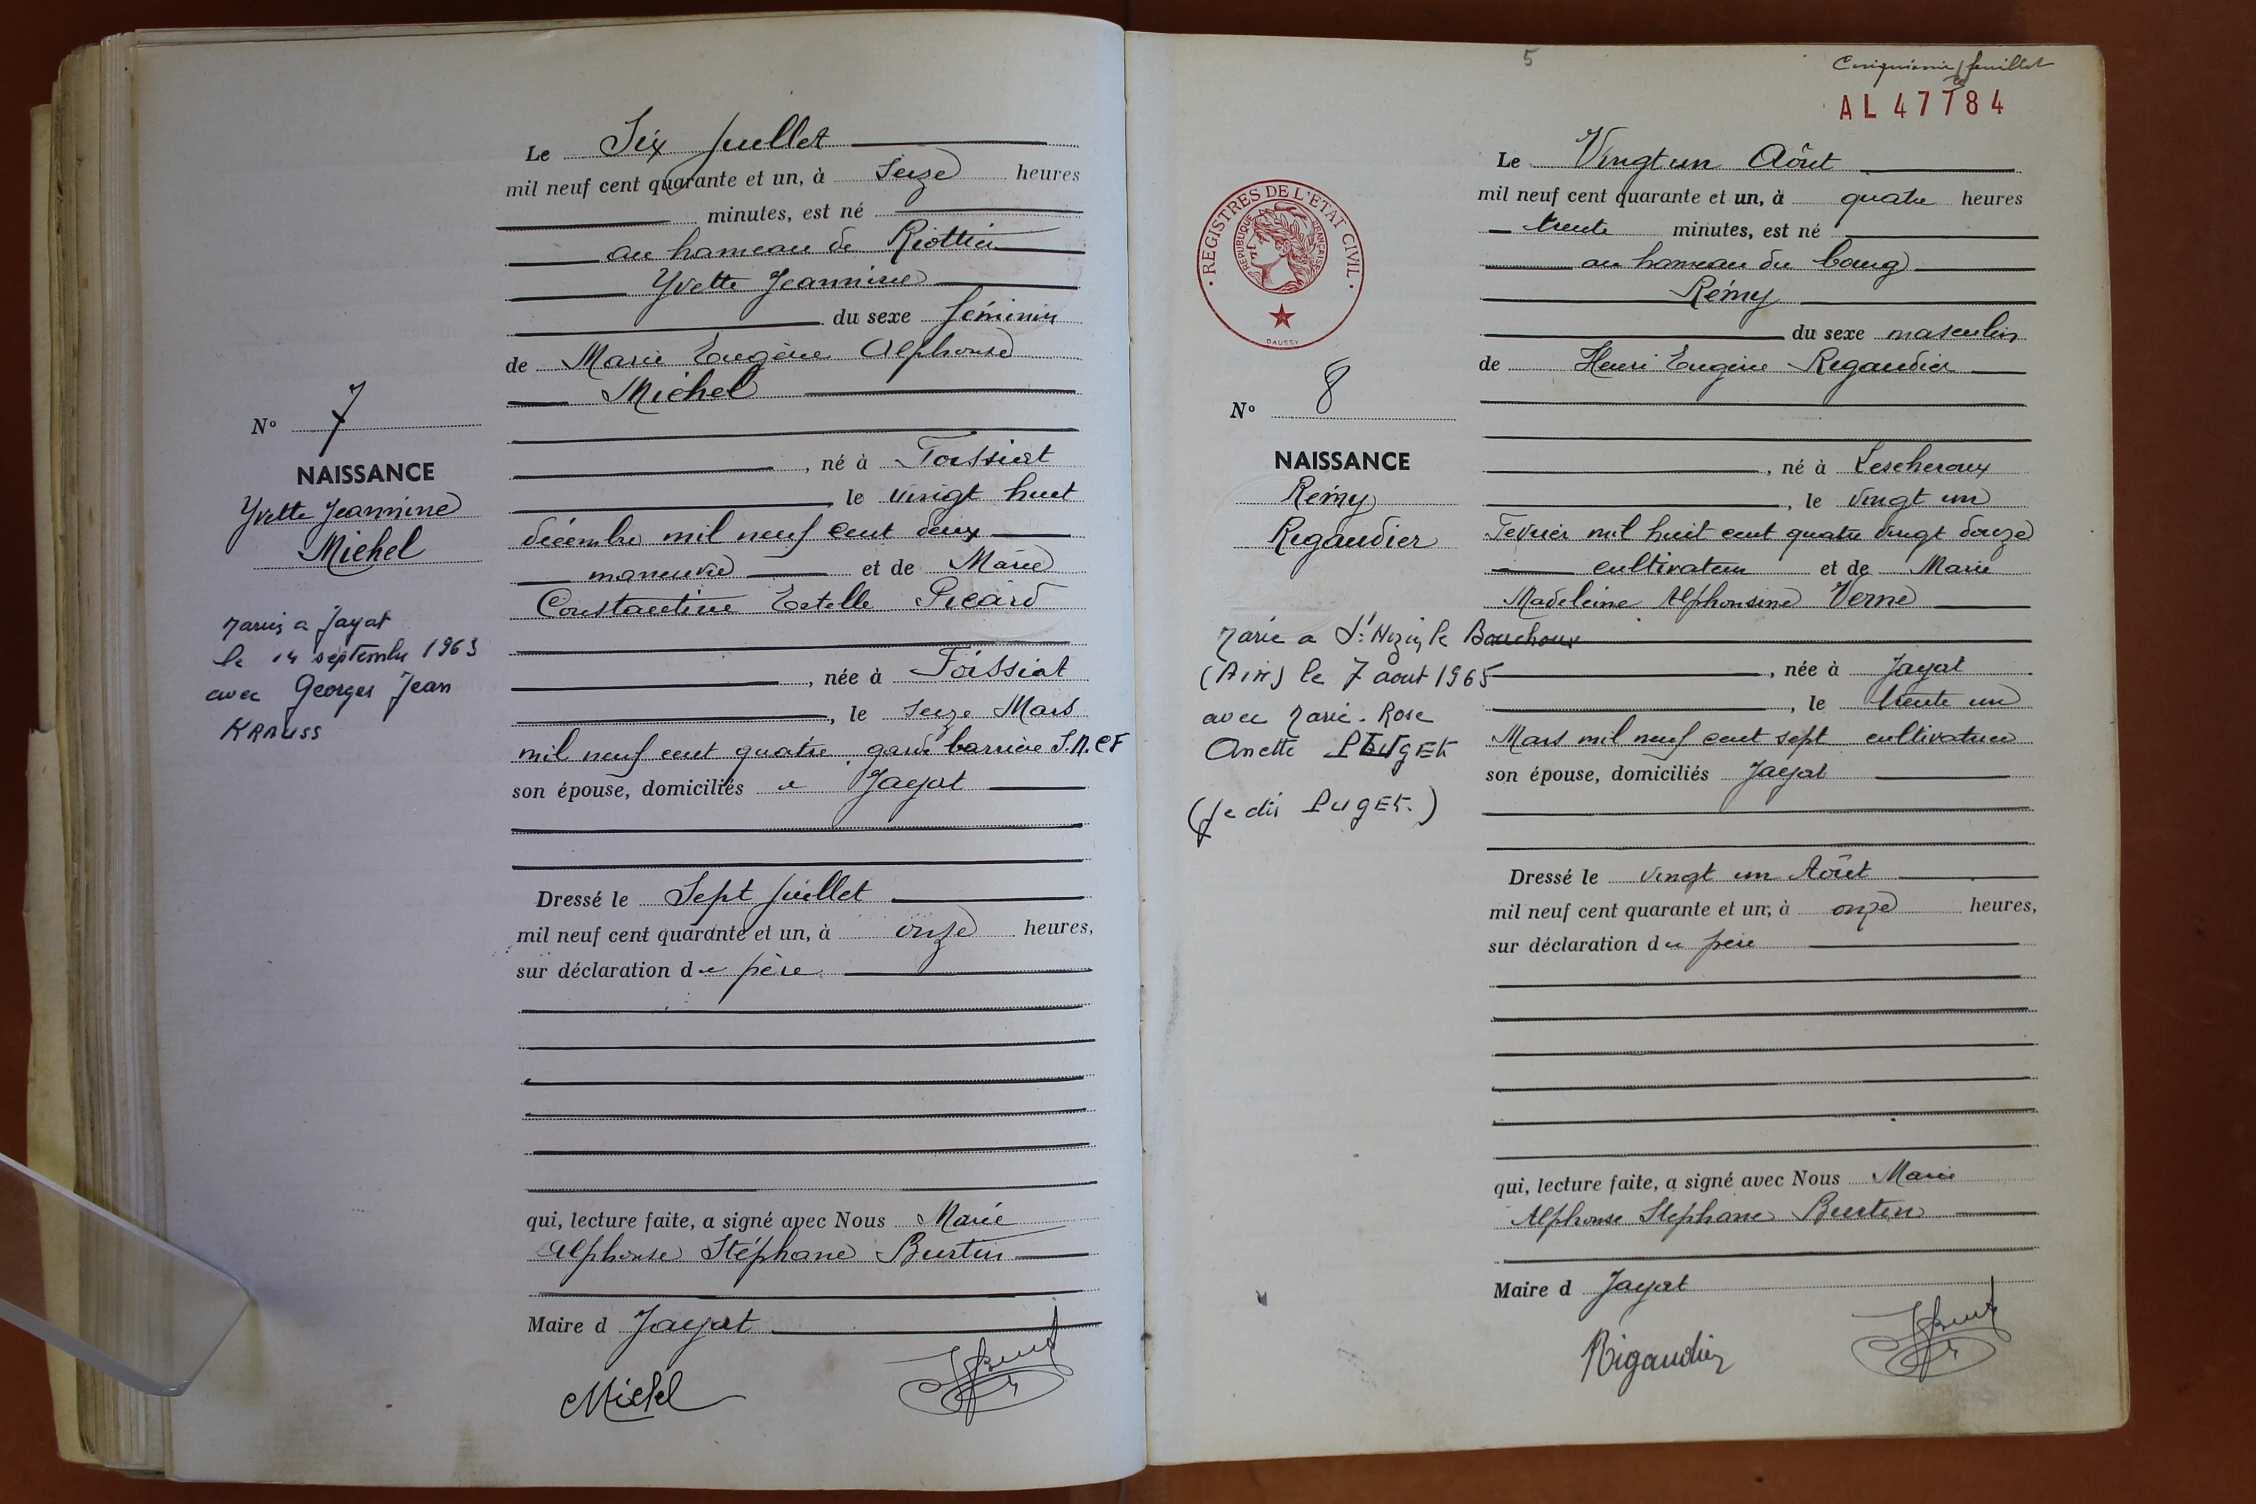 Le Six Juillet
mil neuf cent quarante et un, à seize heures
minutes, est né
au hameau de Riottier
Yvette Jeannine
du sexe féminin
de Marie Eugène Alphonse
Michel
N° 7
NAISSANCE
Yvette Jeannine
Michel
Mariée a Jayat
le 14 septembre 1963
avec Georges Jean
KRAUSS
, né à Foissiat
le vingt huit
décembre mil neuf cent deux
manœuvre et de Marie
Constantine Estelle Picard
, née à Foissiat
, le seize Mars
mil neuf cent quatre garde barrière S.N.CF
son épouse, domiciliés à Jayat
Dressé le Sept Juillet
mil neuf cent quarante et un, à onze heures,
sur déclaration du père
qui, lecture faite, a signé avec Nous Marie
Alphonse Stéphane Burtin
Maire d Jayat
Michel
5
Cinquième feuillet
AL 47784
REGISTRES DE L'ETAT CIVIL
REPUBLIQUE FRANÇAISE
DAUSSY
Le Vingt un Aôut
mil neuf cent quarante et un, à quatre heures
trente minutes, est né
au hameau du bourg
Rémy
du sexe masculin
de Henri Eugène Rigaudier
N° 8
NAISSANCE
Rémy
Rigaudier
Marié a St Nizier le Bouchoux
(Ain) le 7 aout 1965
avec Marie-Rose
Anette PUGET
(Je dis PUGET.)
, né à Lescheroux
, le vingt un
Fevrier mil huit cent quatre vingt douze
cultivateur et de Marie
Madeleine Alphonsine Verne
, née à Jayat
, le trente un
Mars mil neuf cent sept cultivatrice
son épouse, domiciliés Jayat
Dressé le vingt un Aôut
mil neuf cent quarante et un, à onze heures,
sur déclaration du père
qui, lecture faite, a signé avec Nous Marie
Alphonse Stéphane Burtin
Maire d Jayat
Rigaudier